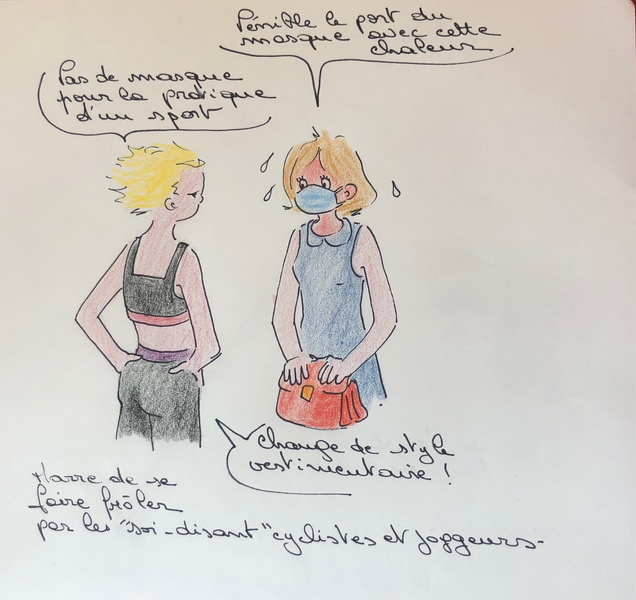 Pénible le port du
masque avec cette
chaleur
Pas de masque
pour la pratique
d'un sport
Change de style
vestimentaire !
Marre de se
faire frôler
par les "soi-disant" cyclistes et joggeurs-